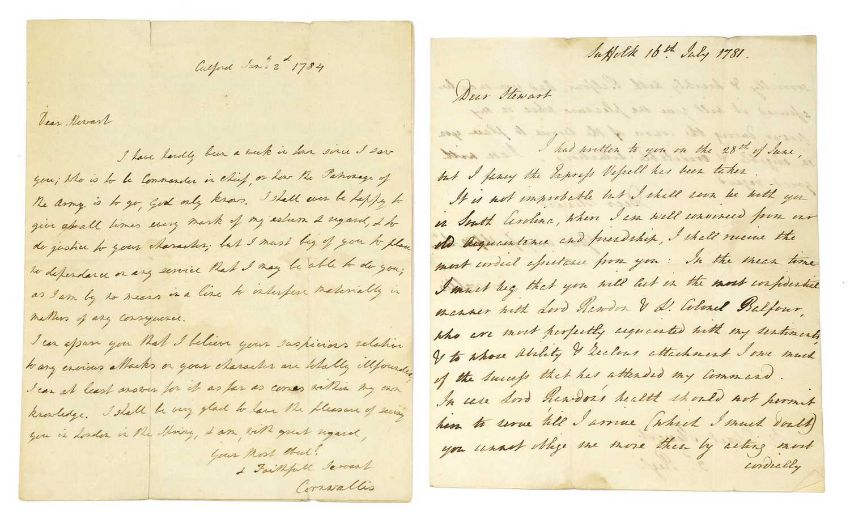 Culford Jan.y 2.d 1784
Dear Stewart
I have hardly been a week in town since I saw
you; who is to be Commander in chief, or how the Patronage of
the Army is to go, God only knows. I shall ever be happy to
give at all times every mark of my esteem & regard, & to
do justice to your character; but I must beg of you to place
no dependance on any service that I may be able to do you;
as I am by no means in a line to interfere materially in
matters of any consequence.
I can assure you that I believe your suspicions relative
to any envious attacks on your character are totally illfounded,
I can at least answer for it as far as comes within my own
knowledge. I shall be very glad to have the pleasure of seeing
you in London in the Spring, & am, with great regard,
Your Most Obed.t
& Faithfull Servant
Cornwallis
Suffolk 16th. July 1781.
Dear Stewart
I had written to you on the 28th of June,
but I fancy the Express Vessell has been taken.
It is not improbable but I shall soon be with you
in South Carolina, where I am well convinced from our
old acquaintance and friendship, I shall receive the
most cordial assistance from you: In the mean time
I must beg that you will act in the most confidential
manner with Lord Rawdon & Lt. Colonel Balfour,
who are most perfectly acquainted with my sentiments,
& to whose ability & Zealous attachment I owe much
of the success that has attended my command.
In case Lord Rawdon's health should not permit
him to serve 'till I arrive (which I much doubt)
you cannot oblige me more than by acting most
cordially